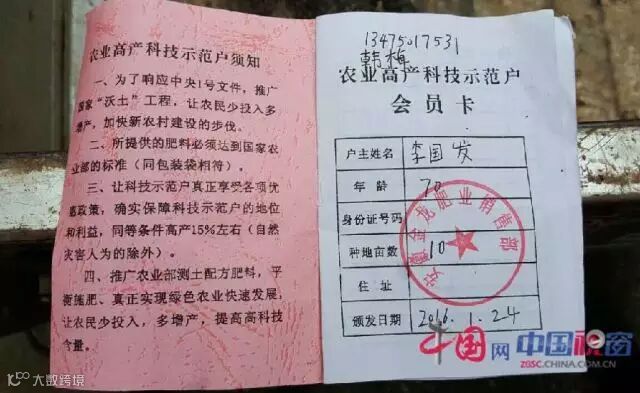 农业高产科技示范户须知
一、为了响应中央1号文件，推广
国家“沃土”工程，让农民少投入多
增产，加快新农村建设的步伐。
二、所提供的肥料必须达到国家农
业部的标准（同包装袋相符）。
三、让科技示范户真正享受各项优
惠政策，确实保障科技示范户的地位
和利益，同等条件高产15%左右（自然
灾害人为的除外）。
四、推广农业部测土配方肥料，平
衡施肥、真正实现绿色农业快速发展，
让农民少投入，多增产，提高高科技
含量。
13475017531
韩梅
农业高产科技示范户
会员卡
户主姓名 李国发
年龄 70
身份证号码
种地亩数 10
住址
颁发日期 2016.1.24
肥业销售部
中国网 中国视窗
ZGSC.CHINA.COM.CN
大数跨境